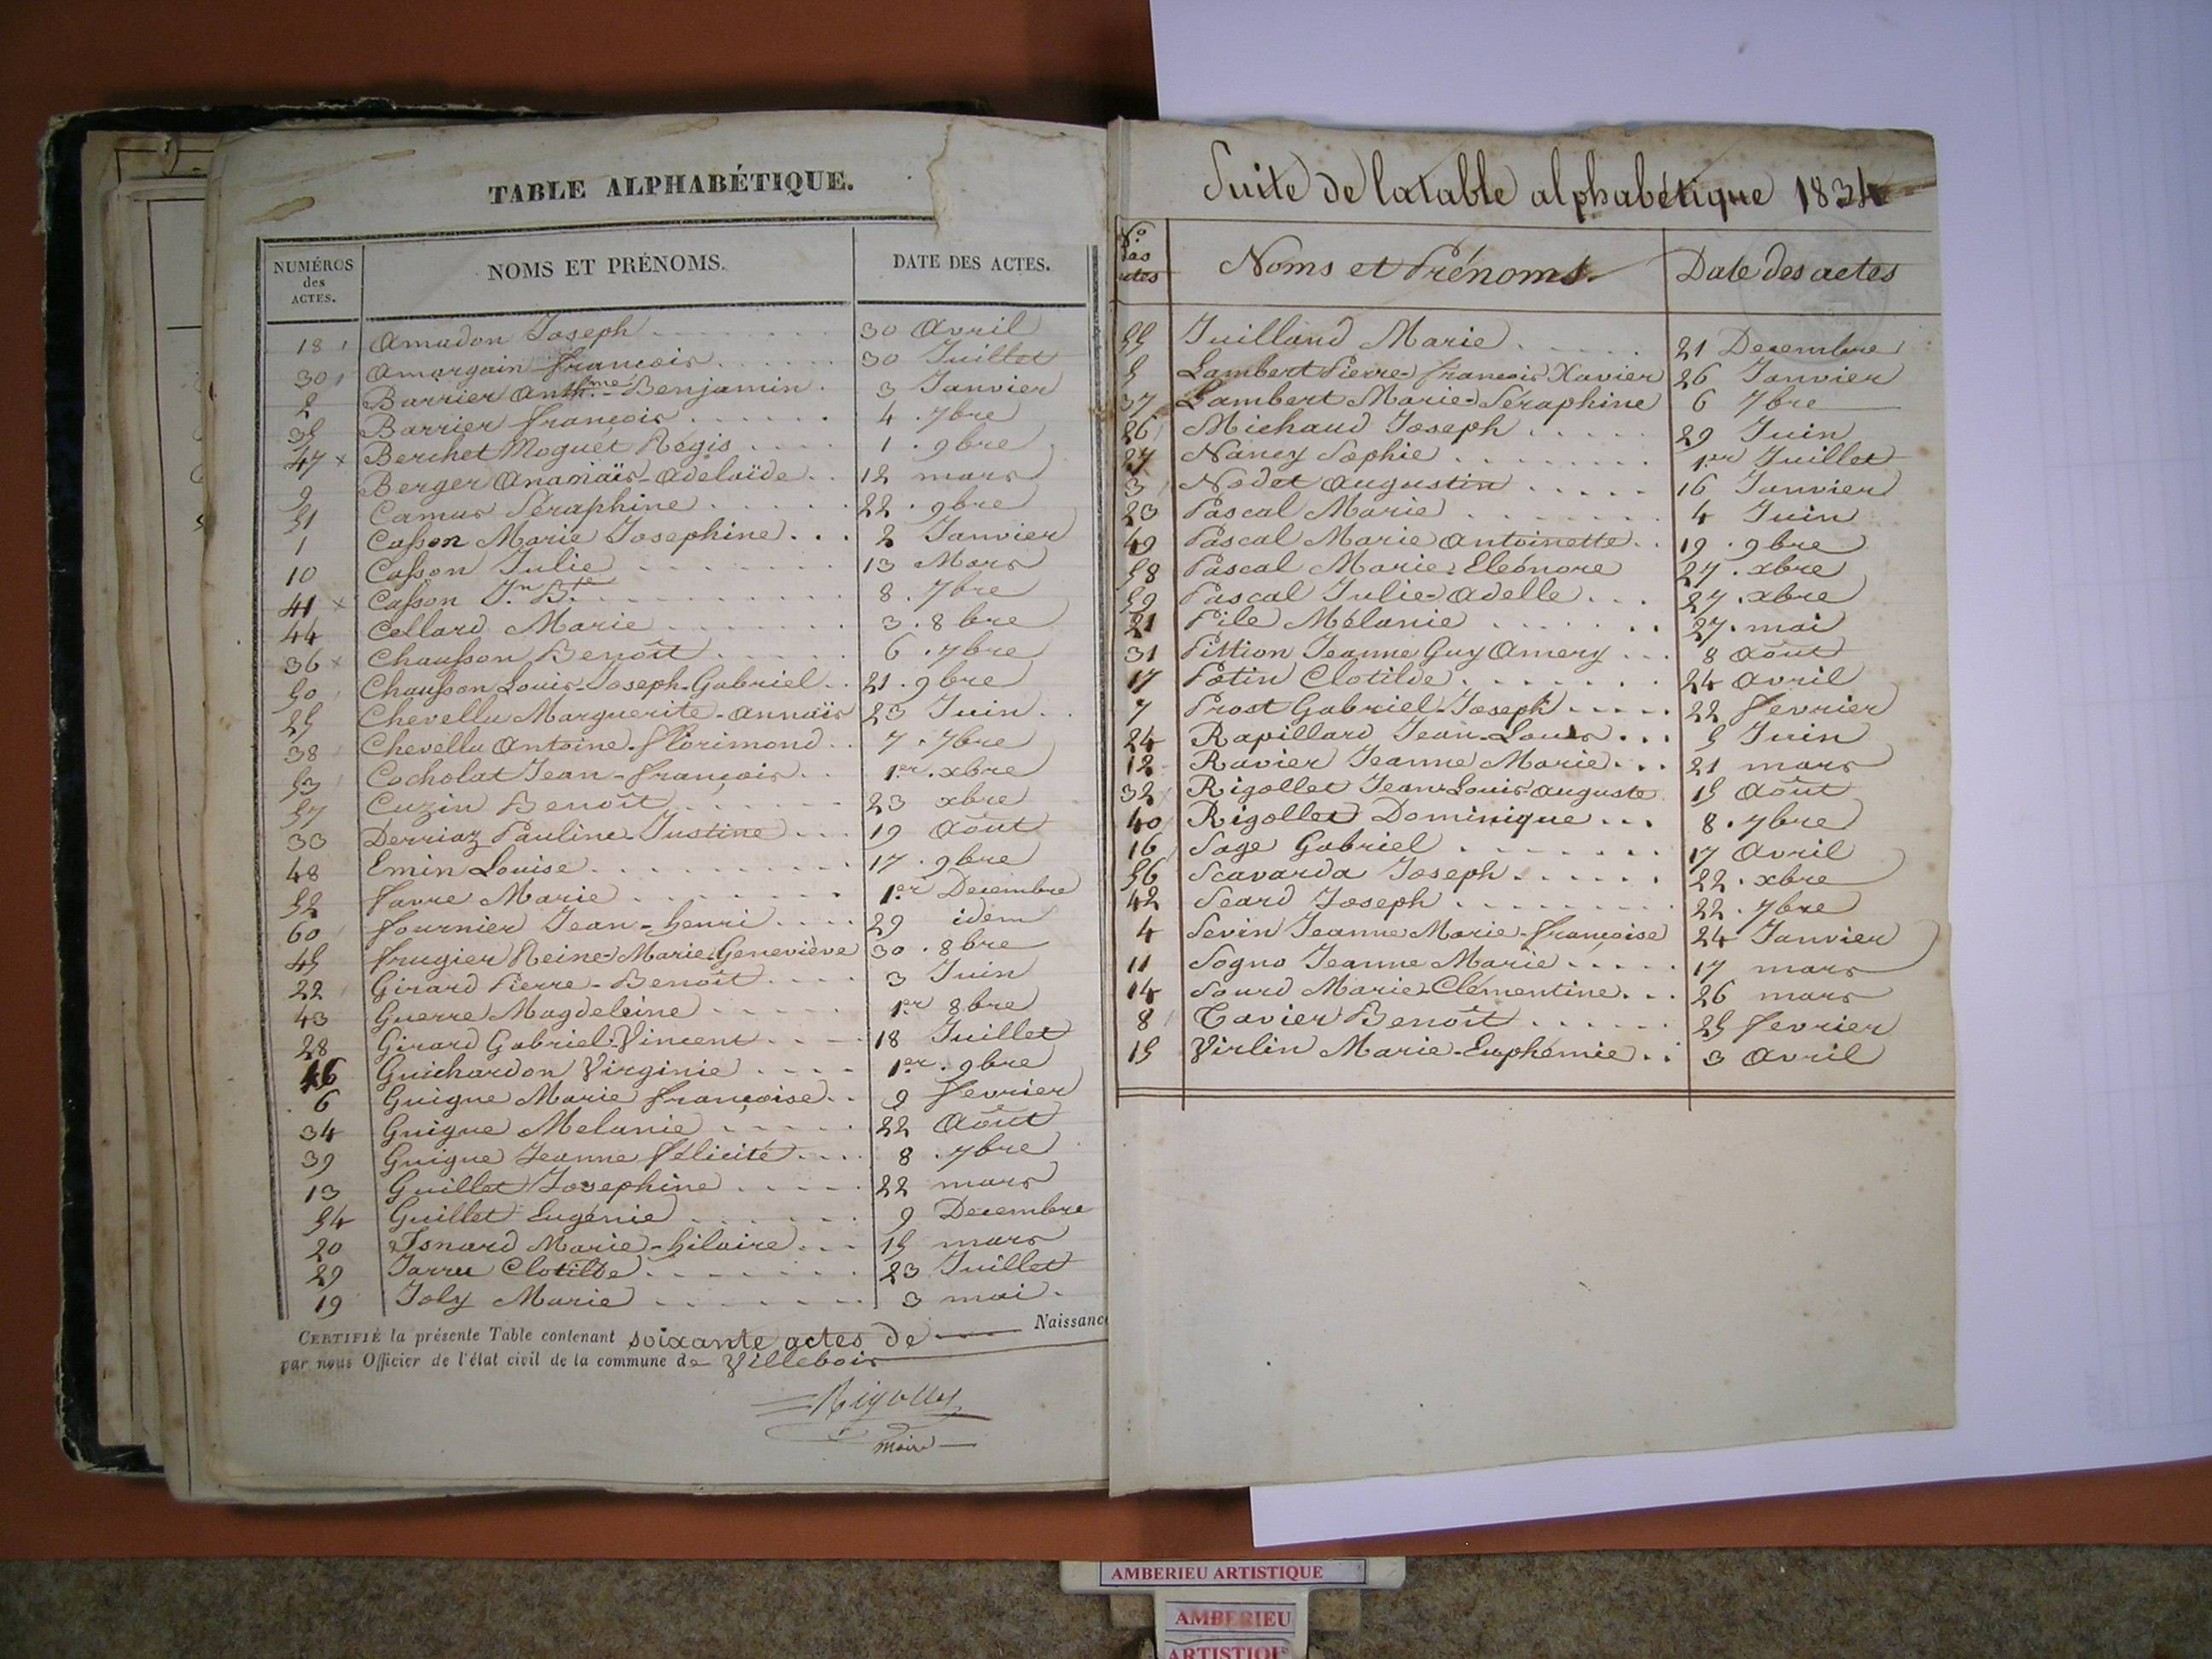 TABLE ALPHABÉTIQUE.
NUMÉROS des ACTES. NOMS ET PRÉNOMS. DATE DES ACTES.
18 Amudon Joseph 30 Avril
30 Amargain françois 30 Juillet
2 Barrier Anth.me Benjamin 3 Janvier
35 Barrier françois 4 . 7bre
47 x Berchet Moguet Régis 1 . 9bre
9 Berger Ananaïs-Adelaïde 12 mars
51 Camus Séraphine 22 . 9bre
1 Casson Marie Josephine 2 Janvier
10 Casson Julie 13 Mars
41 x Casson J.n B.te 8 . 7bre
44 Cellard Marie 3 . 8bre
36 x Chausson Benoît 6 . 7bre
50 Chausson Louis-Joseph-Gabriel 21 . 9bre
25 Chevellu Marguerite-Annaïs 23 Juin
38 Chevellu Antoine-florimond 7 . 7bre
53 Cocholat Jean-françois 1er . xbre
57 Cuzin Benoît 23 xbre
33 Derriaz Pauline-Justine 19 Août
48 Emin Louise 17 . 9bre
52 favre Marie 1er Decembre
60 fournier Jean-henri 29 idem
45 frugier Reine-Marie-Geneviève 30 . 8bre
22 Girard Pierre-Benoît 3 Juin
43 Guerre Magdeleine 1er 8bre
28 Girard Gabriel-Vincent 18 Juillet
46 Guichardon Virginie 1er . 9bre
6 Guigue Marie françoise 9 fevrier
34 Guigue Melanie 22 Août
39 Guigue Jeanne félicité 8 . 7bre
13 Guillet Josephine 22 mars
54 Guillet Eugénie 9 Decembre
20 Isnard Marie-hilaire 15 mars
29 Jarru Clotilde 23 Juillet
19 Joly Marie 3 mai
CERTIFIÉ la présente Table contenant soixante actes de Naissanc
par nous Officier de l'état civil de la commune de Villebois
Rigollet
maire
Suite de la table alphabétique 1834
N.o des actes Noms et Prénoms. Date des actes
55 Juilland Marie 21 Decembre
5 Lambert Pierre-françois Xavier 26 Janvier
37 Lambert Marie-Séraphine 6 7bre
26 Michaud Joseph 29 Juin
27 Nancy Sophie 1er Juillet
3 Nodet Augustin 16 Janvier
23 Pascal Marie 4 Juin
49 Pascal Marie Antoinette 19 . 9bre
58 Pascal Marie-Eléonore 27 . xbre
59 Pascal Julie-Adelle 27 . xbre
21 Pile Mélanie 27 . mai
31 Pittion Jeanne Guy Amery 8 Août
17 Potin Clotilde 24 Avril
7 Prost Gabriel-Joseph 22 fevrier
24 Rapillard Jean-Louis 5 Juin
12 Ravier Jeanne Marie 21 mars
32 Rigollet Jean-Louis Auguste 15 Août
40 Rigollet Dominique 8 . 7bre
16 Sage Gabriel 17 Avril
56 Scavarda Joseph 22 . xbre
42 Seard Joseph 22 . 7bre
4 Sevin Jeanne Marie-françoise 24 Janvier
11 Sogno Jeanne Marie 17 mars
14 Sourd Marie-Clémentine 26 mars
8 Tavier Benoît 25 fevrier
15 Virlin Marie-Euphémie 3 Avril
AMBERIEU ARTISTIQUE
AMBERIEU
ARTISTIQUE